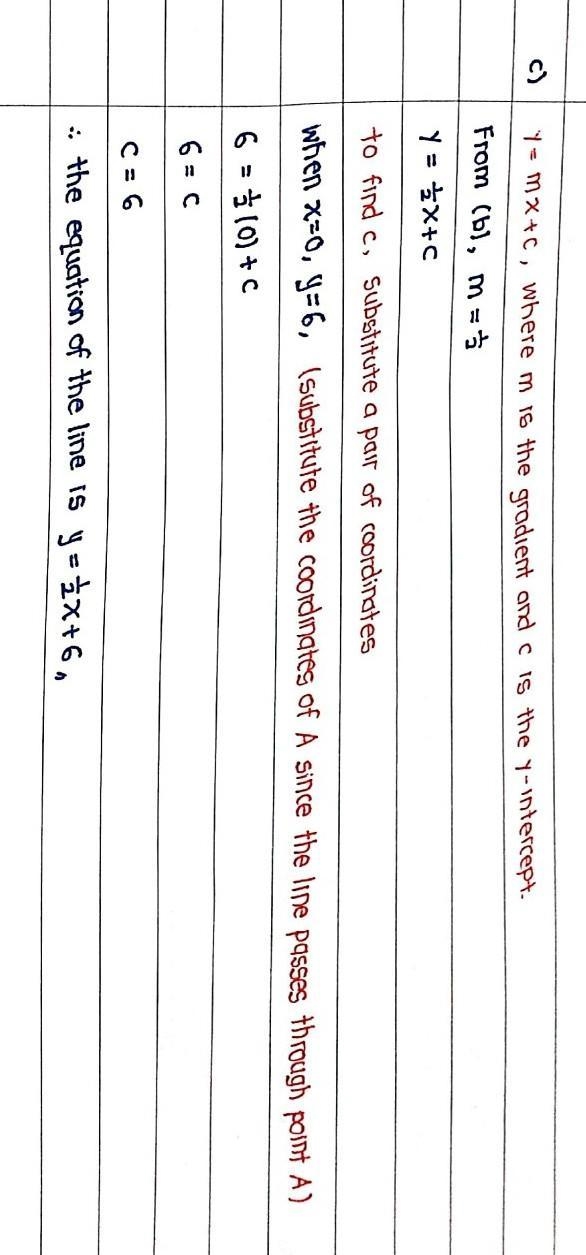 c) y = mx + c, where m is the gradient and c is the y-intercept.
From (b), m = ½
y = ½x + c
to find c, substitute a pair of coordinates
when x=0, y=6, (substitute the coordinates of A since the line passes through point A)
6 = ½(0) + c
6 = c
c = 6
∴ the equation of the line is y = ½x + 6 〃